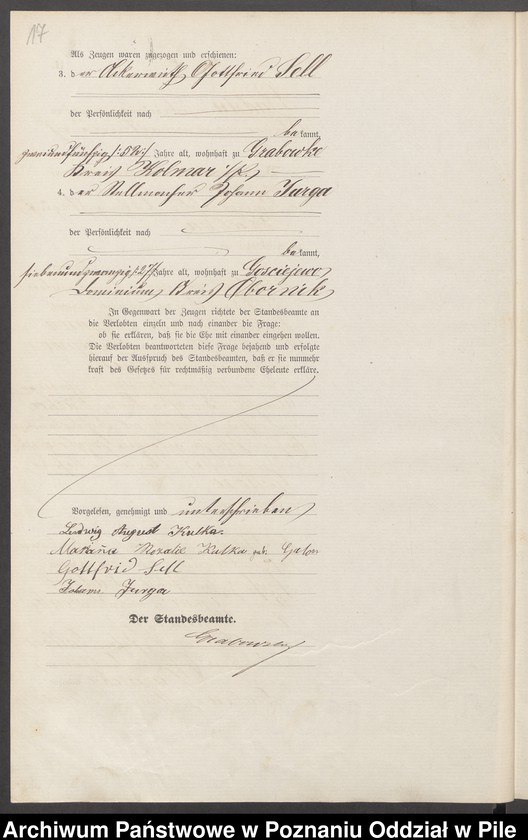 17
Als Zeugen waren zugezogen und erschienen:
3. der Ackerwirth Gottfried Sell
der Persönlichkeit nach
bekannt,
zweiundfünfzig /:52:/ Jahre alt, wohnhaft zu Grabowke
Kreis Kolmar i/P.
4. der Stellmacher Johann Jurga
der Persönlichkeit nach
bekannt,
siebenundzwanzig /:27:/ Jahre alt, wohnhaft zu Gosciejewo,
Dominium, Kreis Obornik
In Gegenwart der Zeugen richtete der Standesbeamte an
die Verlobten einzeln und nach einander die Frage:
ob sie erklären, daß sie die Ehe mit einander eingehen wollen.
Die Verlobten beantworteten diese Frage bejahend und erfolgte
hierauf der Ausspruch des Standesbeamten, daß er sie nunmehr
kraft des Gesetzes für rechtmäßig verbundene Eheleute erkläre.
Vorgelesen, genehmigt und unterschrieben
Ludwig August Kutka.
Kutka geb.
Gottfrid Sell
Johann Jurga
Der Standesbeamte.
Archiwum Państwowe w Poznaniu Oddział w Pile